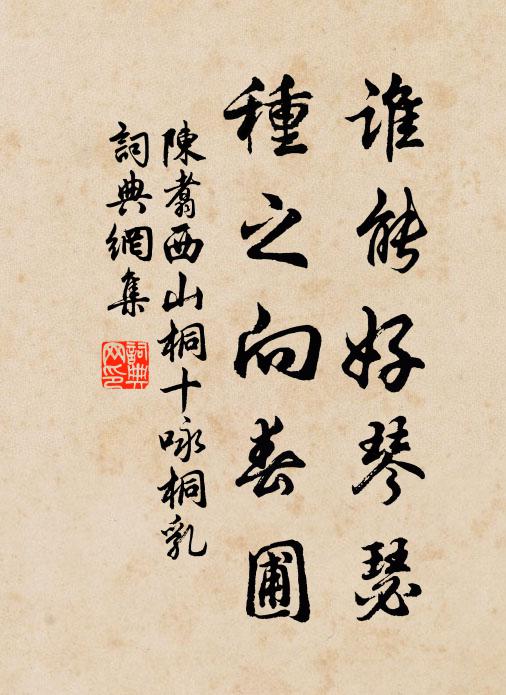 誰能好琴瑟
種之向春圃
陳翥西山桐十咏桐乳
詞典網集
詞典
网印